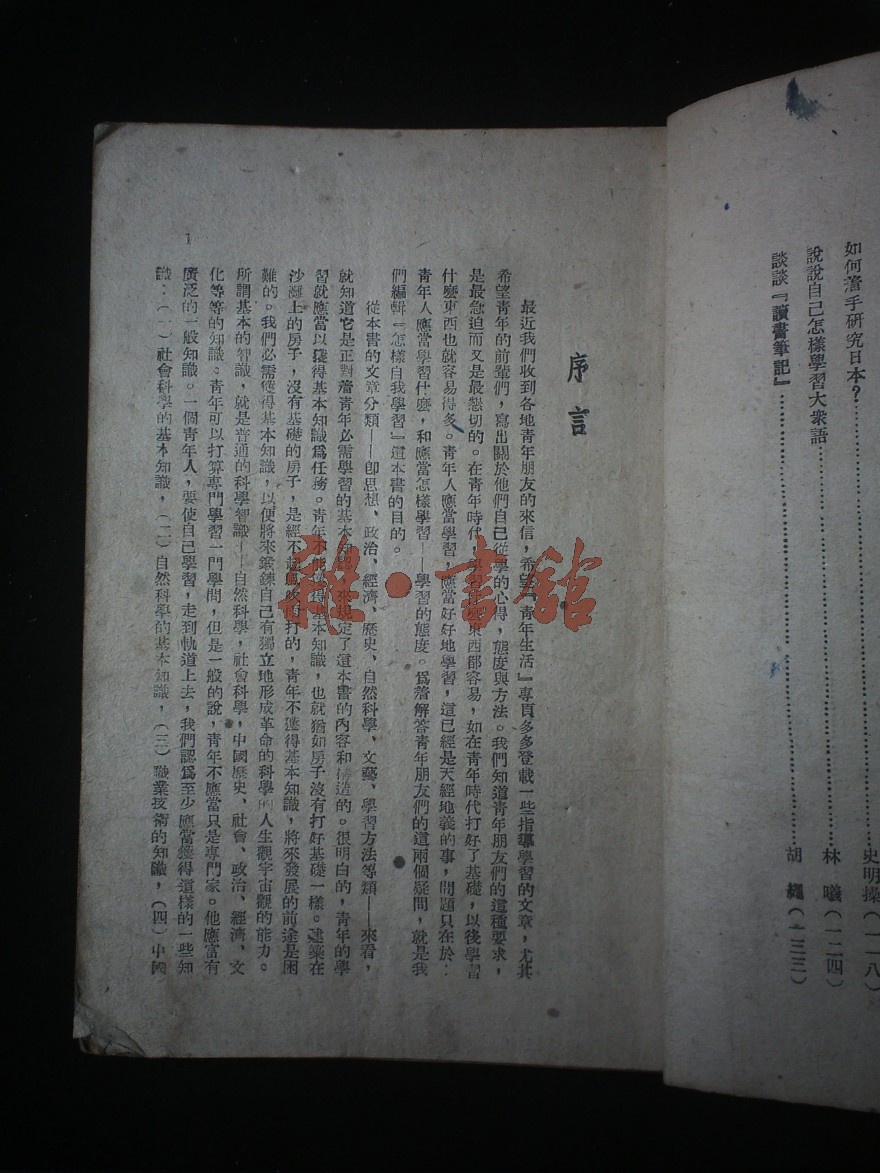 如何著手研究日本？……史明操（一一八）
說說自己怎樣學習大衆語……林　曦（一二四）
談談『讀書筆記』……胡　繩（一三三）
序言
最近我們收到各地青年朋友的來信，希望『青年生活』專頁多多登載一些指導學習的文章，尤其
希望青年的前輩們，寫出關於他們自己從學的心得，態度與方法。我們知道青年朋友們的這種要求，
是最急迫而又是最懇切的。在青年時代，學習什麼東西都容易，如在青年時代打好了基礎，以後學習
什麼東西也就容易得多。青年人應當學習，應當好好地學習，這已經是天經地義的事，問題只在於：
青年人應當學習什麼，和應當怎樣學習——學習的態度。爲着解答青年朋友們的這兩個疑問，就是我
們編輯『怎樣自我學習』這本書的目的。
從本書的文章分類——卽思想、政治、經濟、歷史、自然科學、文藝、學習方法等類——來看，
就知道它是正對着青年必需學習的基本知識，來規定了這本書的內容和構造的。很明白的，青年的學
習就應當以獲得基本知識爲任務。青年不能獲得基本知識，也就猶如房子沒有打好基礎一樣。建築在
沙灘上的房子，沒有基礎的房子，是經不起風吹雨打的，青年不獲得基本知識，將來發展的前途是困
難的。我們必需獲得基本知識，以便將來鍛鍊自己有獨立地形成革命的科學的人生觀宇宙觀的能力。
所謂基本的智識，就是普通的科學智識——自然科學，社會科學，中國歷史、社會、政治、經濟、文
化等等的知識。青年可以打算專門學習一門學問，但是一般的說，青年不應當只是專門家。他應富有
廣泛的一般知識。一個青年人，要使自己學習，走到軌道上去，我們認爲至少應當獲得這樣的一些知
識：（一）社會科學的基本知識，（二）自然科學的基本知識，（三）職業技術的知識，（四）中國
1
雜·書館